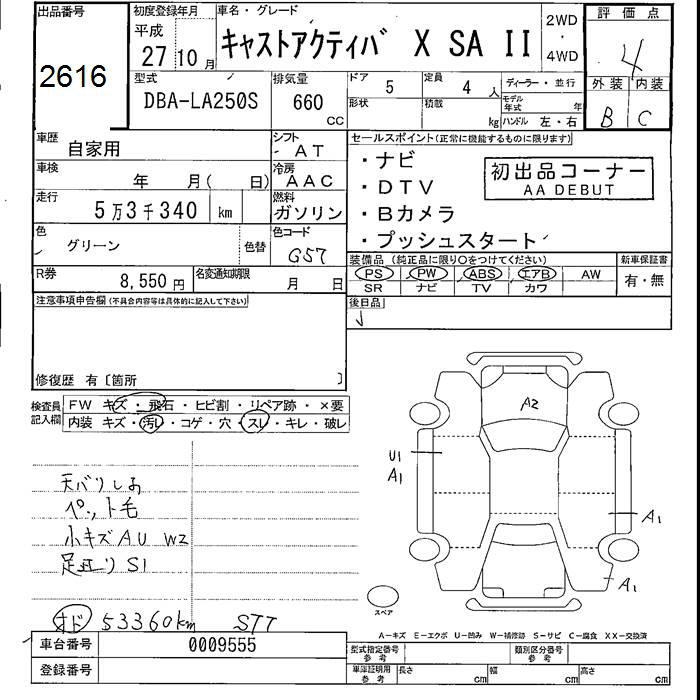 出品番号 2616
初度登録年月 平成 27年 10月
車名・グレード キャストアクティバ X SA II
2WD・4WD
評価点 4
外装 B 内装 C
型式 DBA-LA250S
排気量 660 CC
ドア 5
定員 4 人
ディーラー・並行
形状
積載 kg
モデル年式 年
ハンドル 左・右
車歴 自家用
シフト AT
セールスポイント(正常に機能するものに限ります)
車検 年 月( 日)
冷房 AAC
・ナビ
・DTV
・Bカメラ
・プッシュスタート
初出品コーナー
AA DEBUT
走行 5万3千340 km
燃料 ガソリン
色 グリーン
色替
色コード G57
装備品 (純正品に限り○をつけてください)
新車保証書
PS PW ABS エアB AW
有・無
SR ナビ TV カワ
R券 8,550円
名変通知期限 月 日
注意事項申告欄(不具合内容等は具体的に記入して下さい)
後日品
修復歴 有〔箇所 〕
検査員記入欄
FW キズ・飛石・ヒビ割・リペア跡・×要
内装 キズ・汚レ・コゲ・穴・スレ・キレ・破レ
A2
U1
A1
A1
A1
天バリしお
ペット毛
小キズAU W2
足廻りS1
オド 53360km STT
スペア
A-キズ E-エクボ U-凹み W-補修跡 S-サビ C-腐食 XX-交換済
車台番号 0009555
型式指定番号 参考
類別区分番号 参考
登録番号
車庫証明用 参考
長さ cm 幅 cm 高さ cm